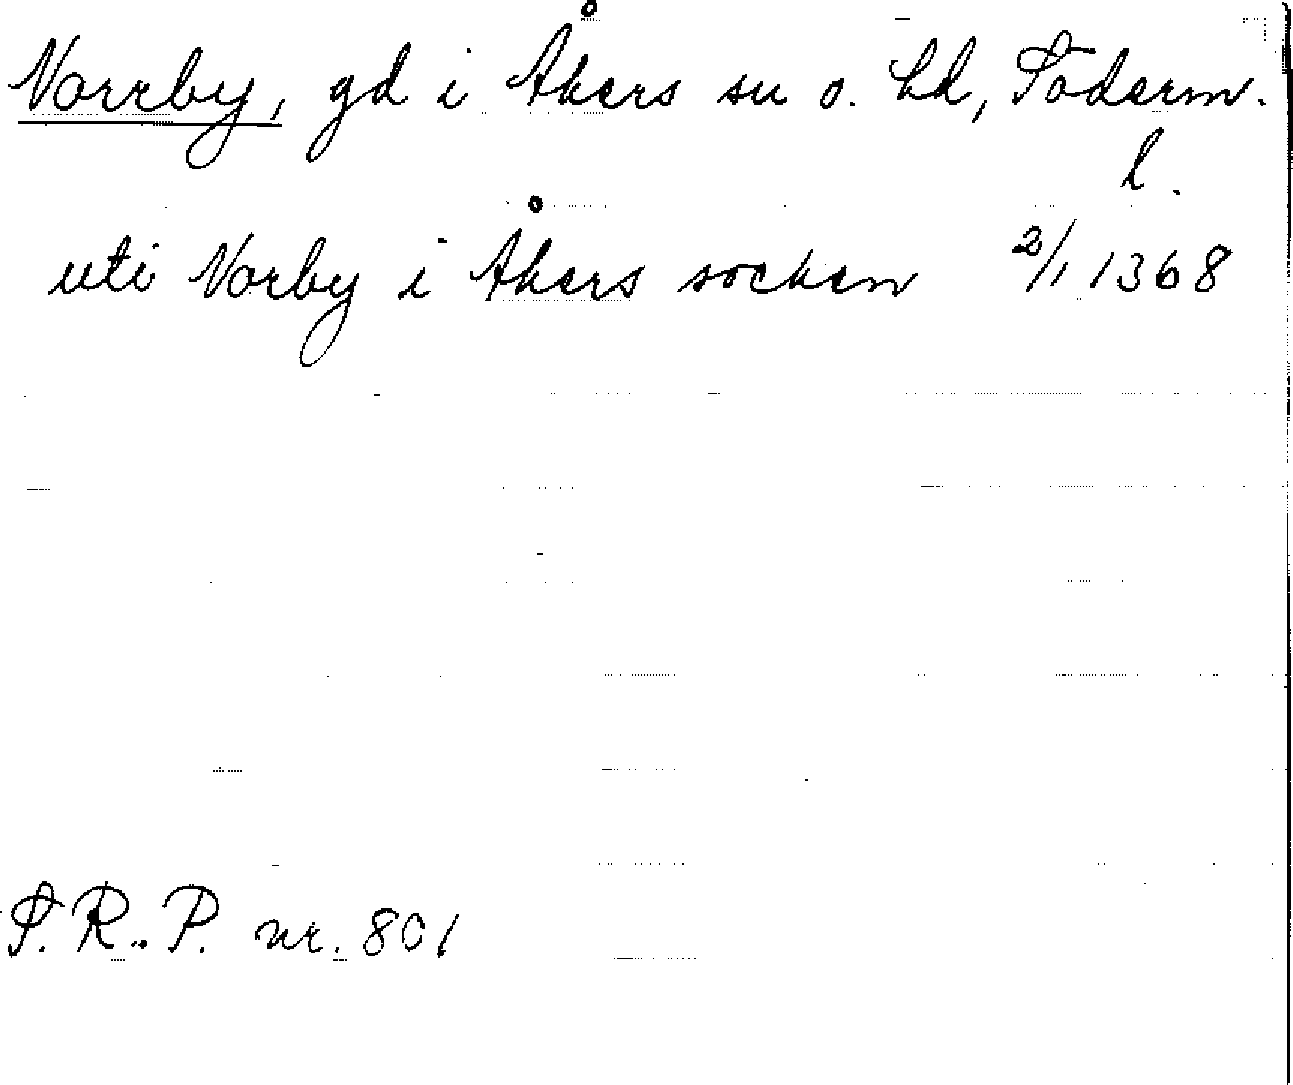 Norrby, gd i Åkers sn o. hd, Söderm.
l.
uti Norby i Åkers socken 2/1 1368
S. R. P. nr. 801